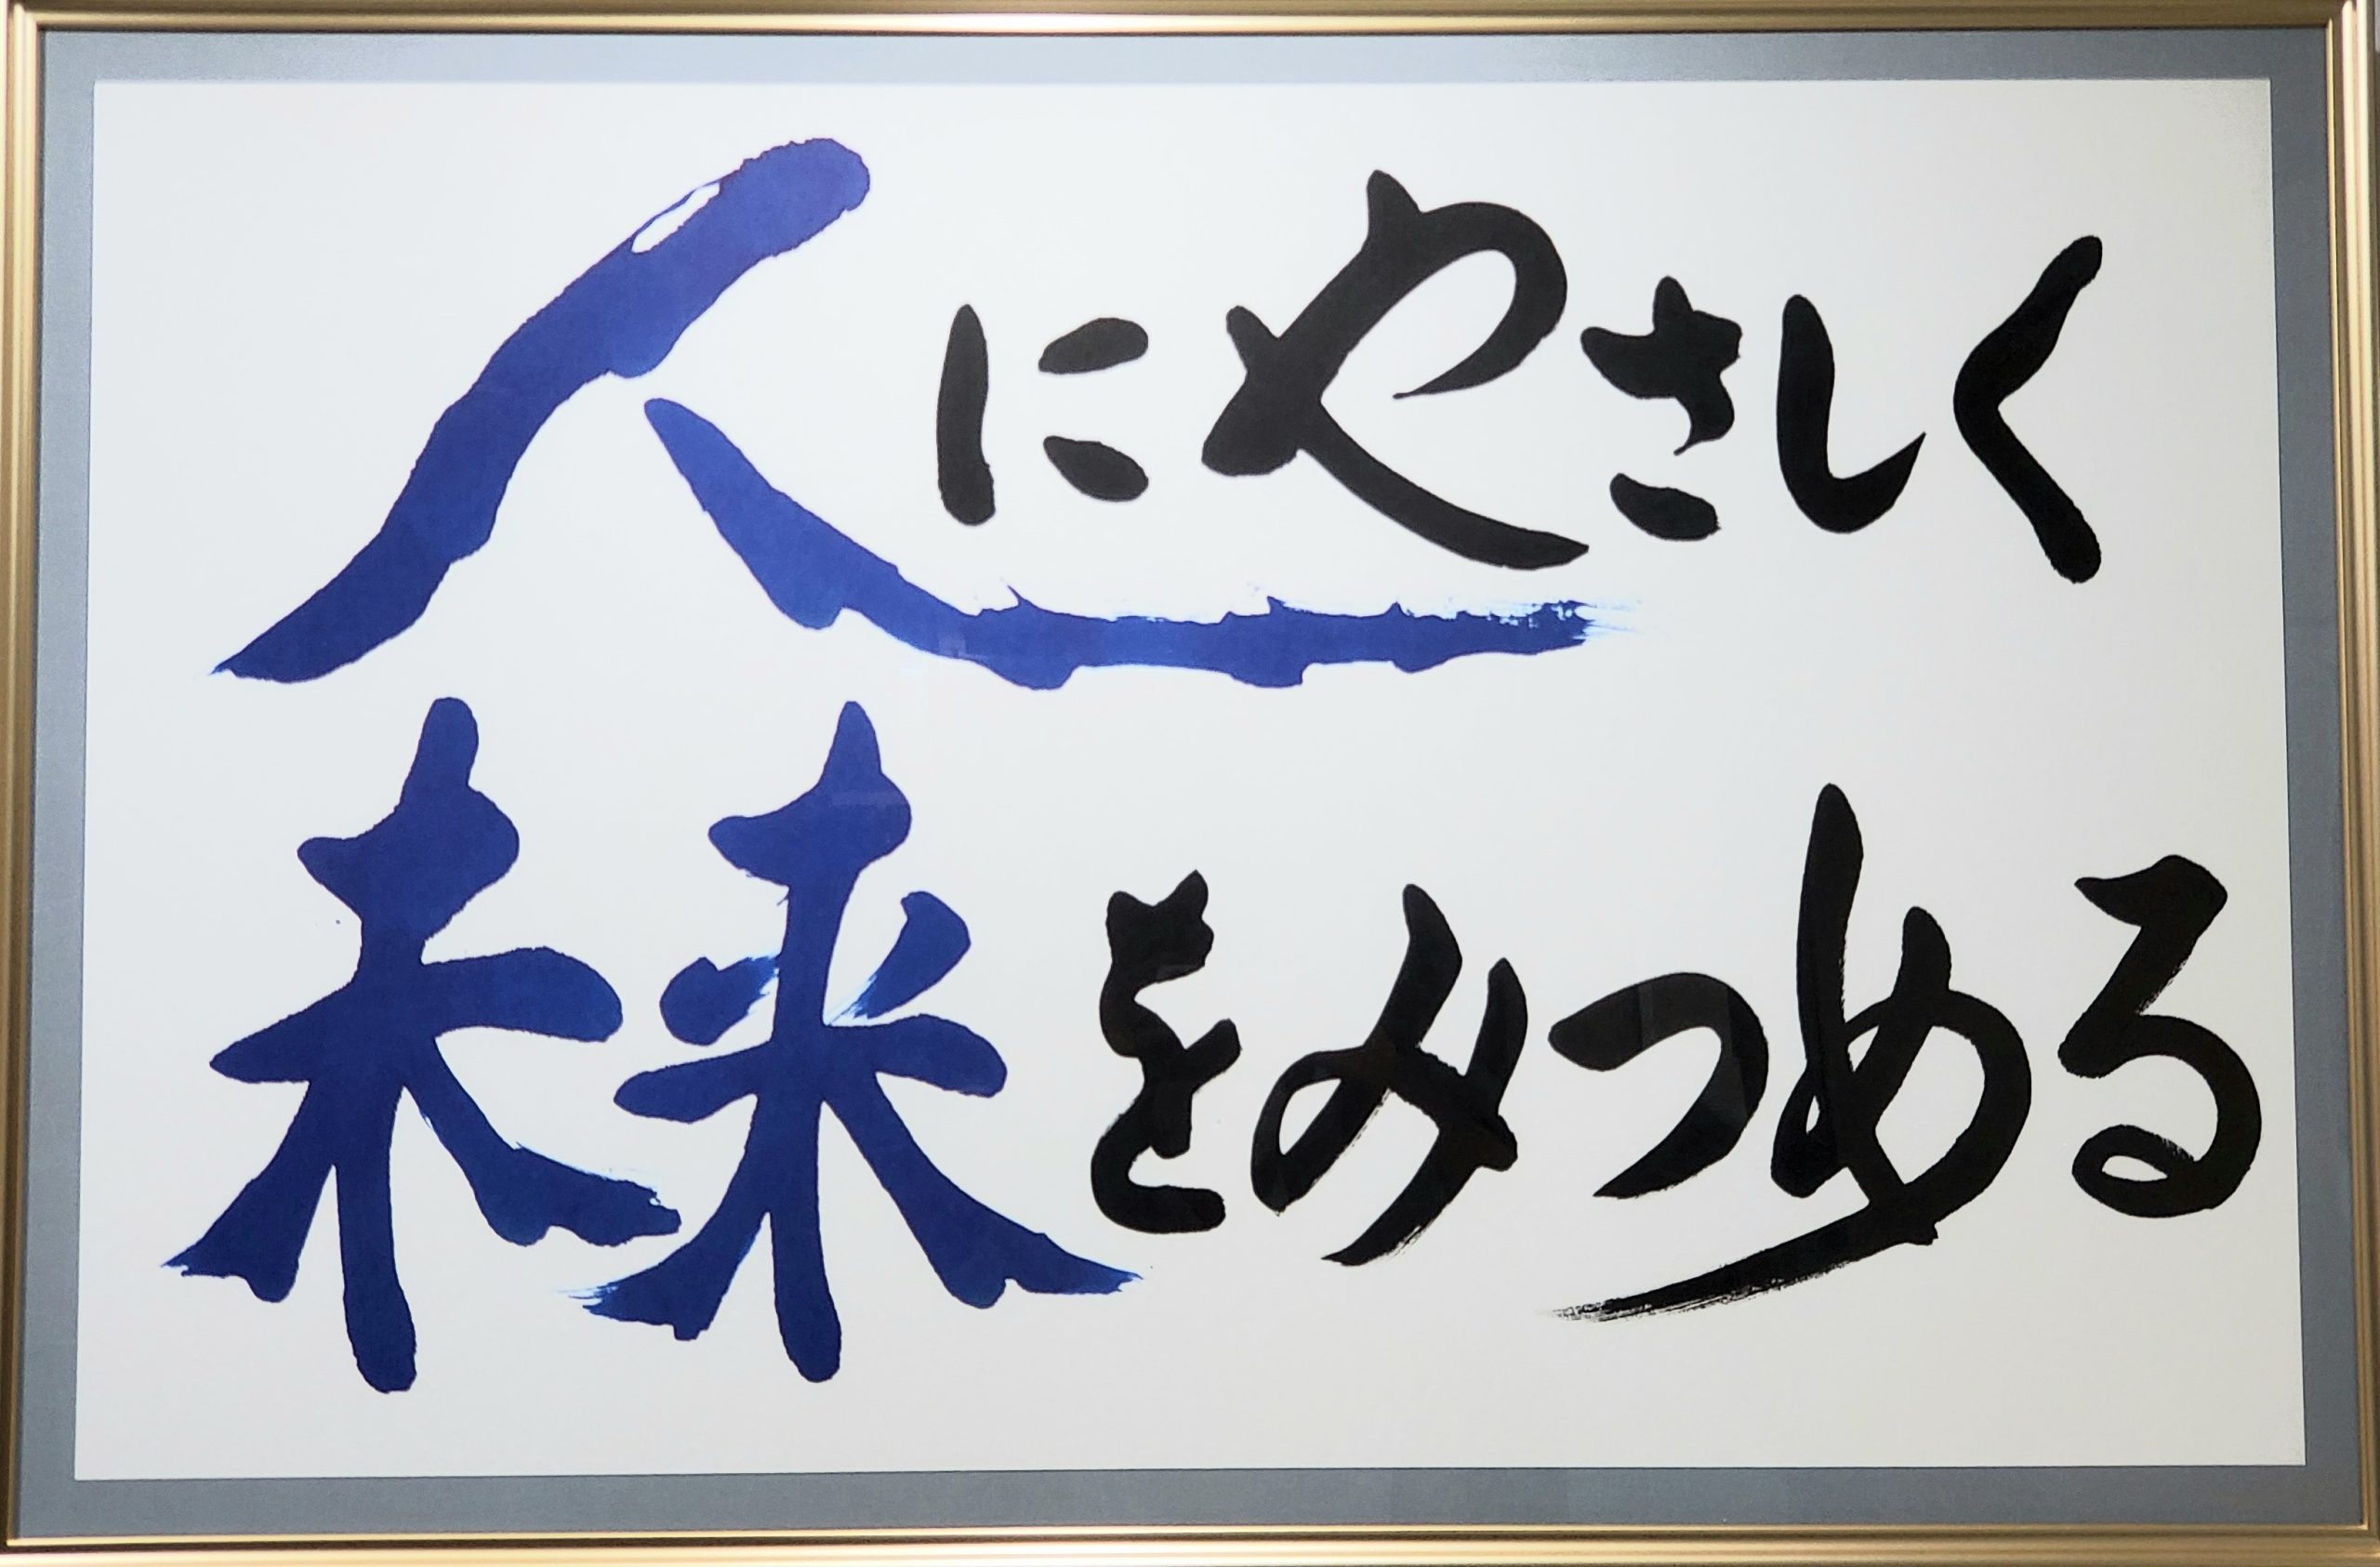 人にやさしく
未来をみつめる